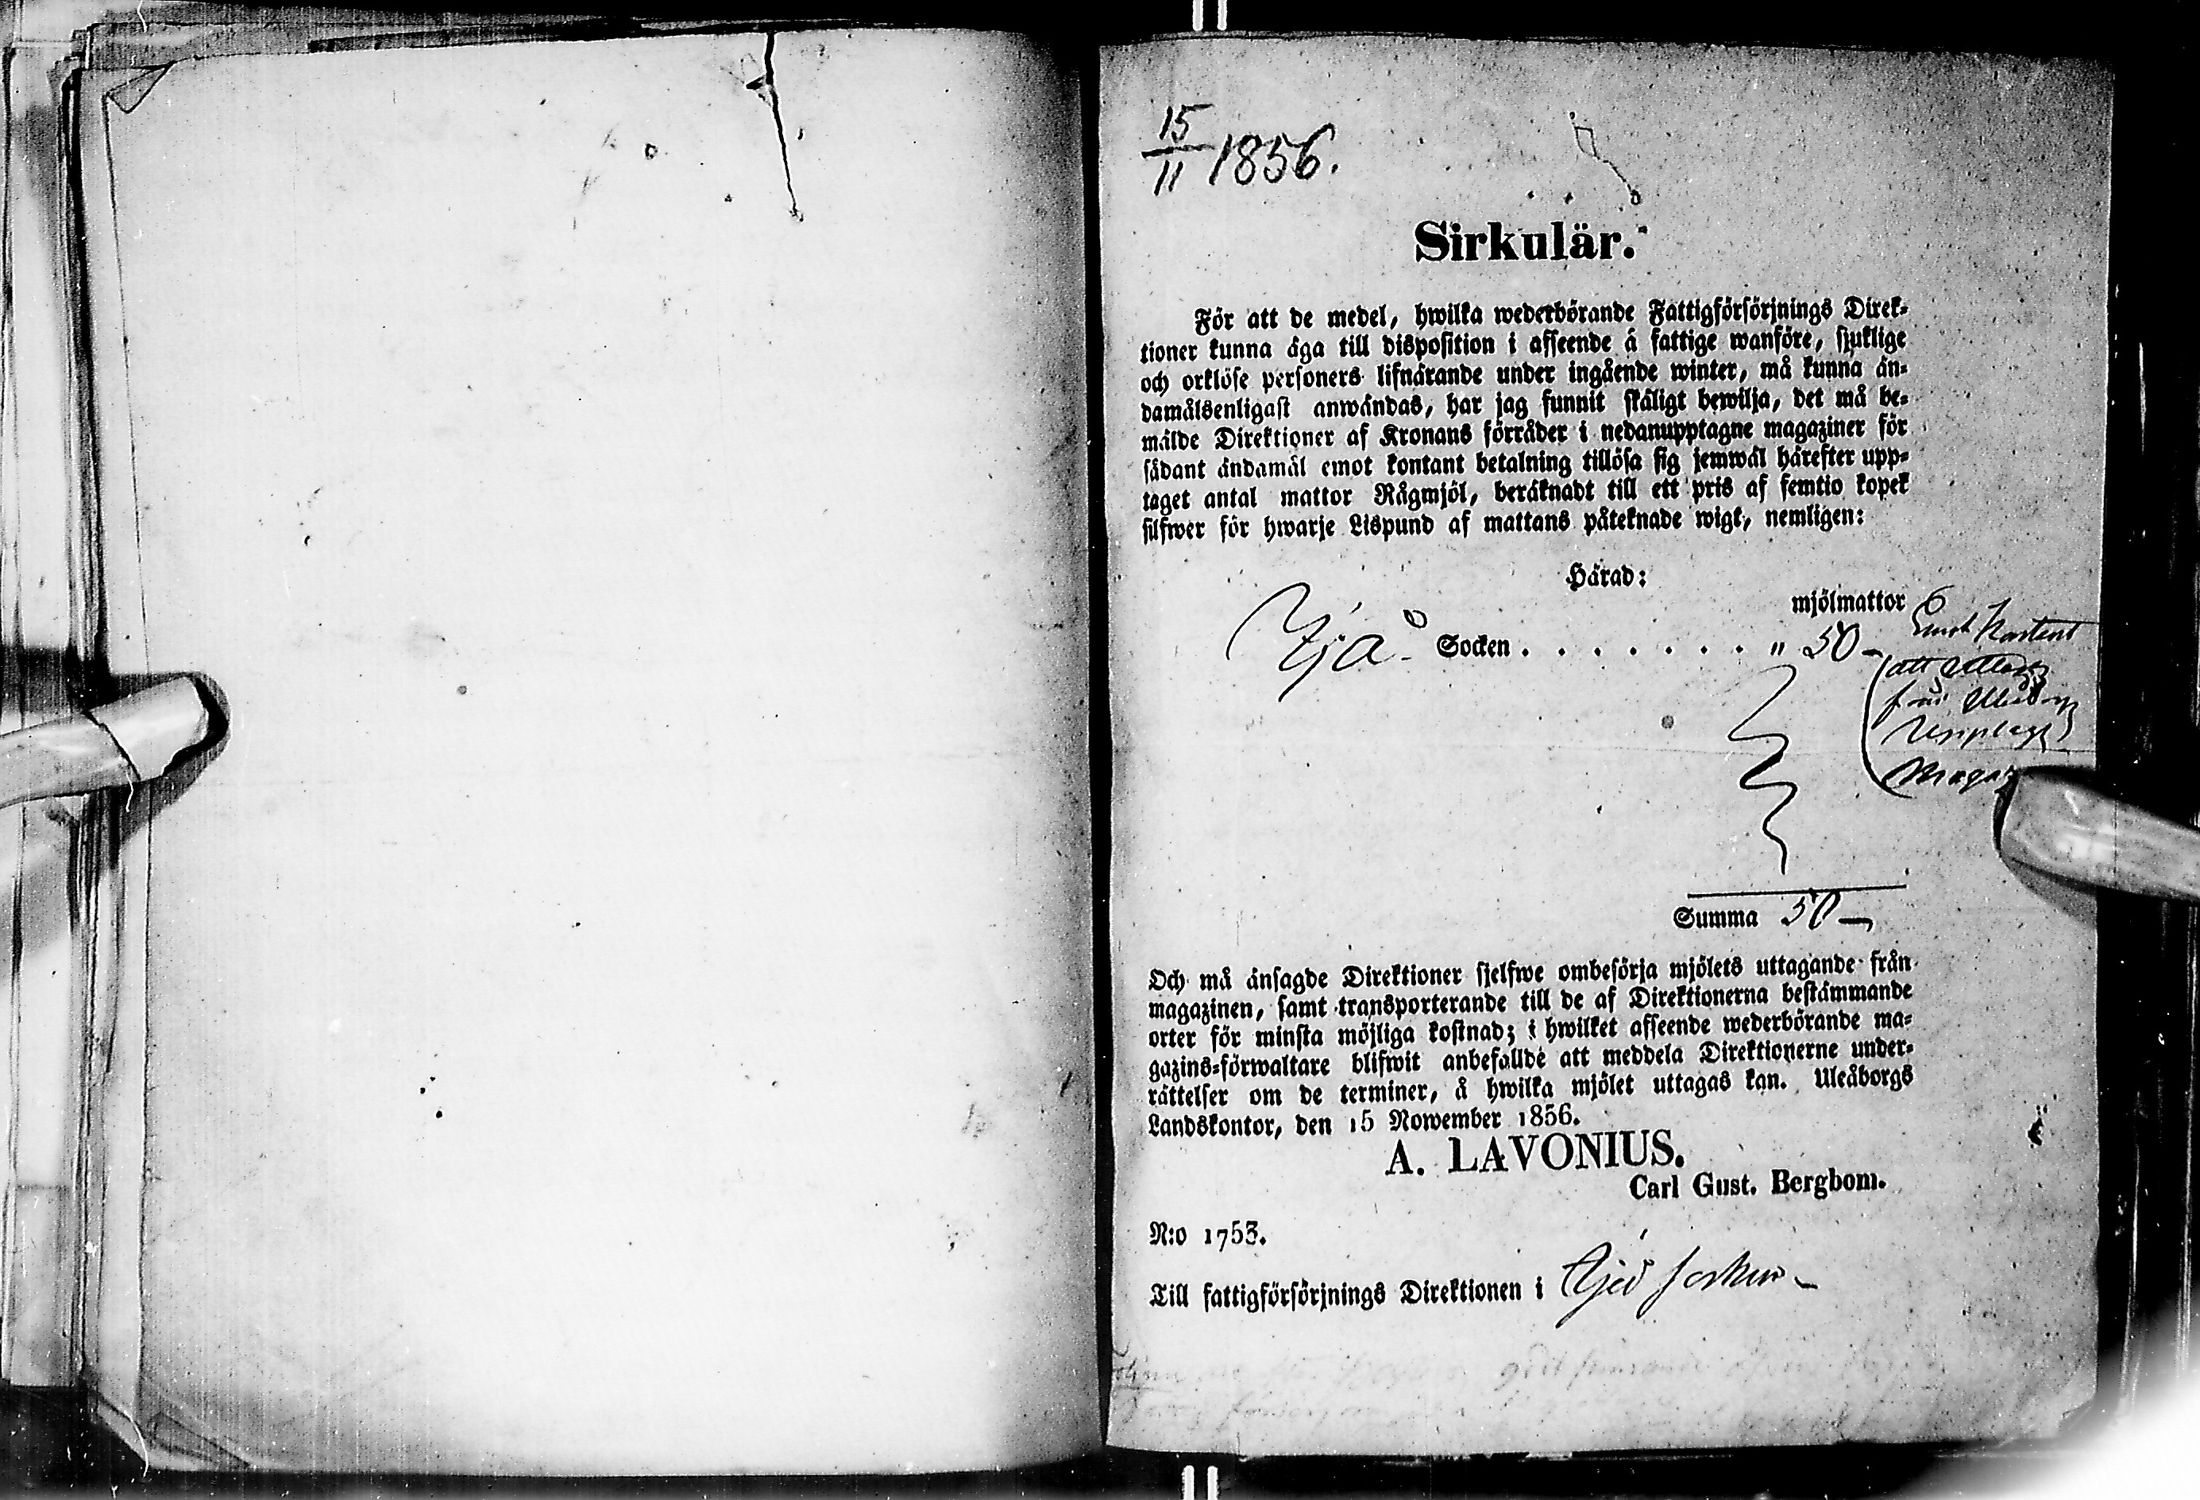 15/11 1856.
Sirkulär.
För att de medel, hwilka wederbörande Fattigförsörjnings Direk-
tioner kunna äga till disposition i afseende å fattige wanföre, sjuklige
och orklöse personers lifnärande under ingående winter, må kunna än-
damålsenligast anwändas, har jag funnit skäligt bewilja, det må be-
mälde Direktioner af Kronans förråder i nedanupptagne magaziner för
sådant ändamål emot kontant betalning tillösa sig jemwäl härefter upp-
taget antal mattor Rågmjöl, beräknadt till ett pris af femtio kopek
silfwer för hwarje Lispund af mattans påteknade wigt, nemligen:
Härad:
mjölmattor
Ijå Socken . . . . . . . " 50 –
att
från Uleåborg
Summa 50 –
Och må änsagde Direktioner sjelfwe ombesörja mjölets uttagande från
magazinen, samt transporterande till de af Direktionerna bestämmande
orter för minsta möjliga kostnad; i hwilket afseende wederbörande ma-
gazins-förwaltare blifwit anbefallde att meddela Direktionerne under-
rättelser om de terminer, å hwilka mjölet uttagas kan. Uleåborgs
Landskontor, den 15 Nowember 1856.
A. LAVONIUS.
Carl Gust. Bergbom.
N:o 1753.
Till fattigförsörjnings Direktionen i Ijå socken –